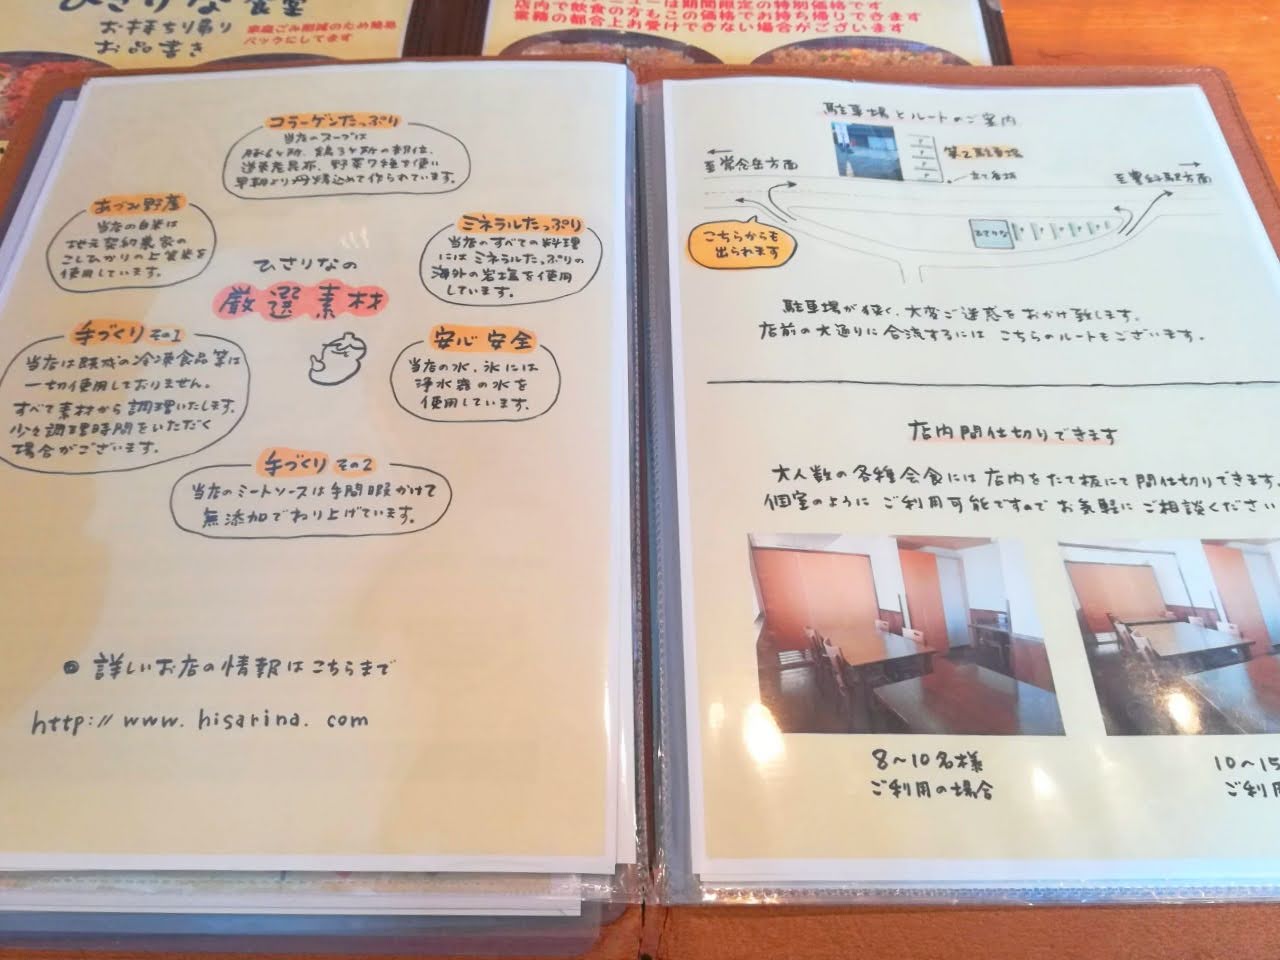 ひさりな食堂
お持ち帰り
お品書き
家庭ごみ削減のため簡易
パックにしてます
店内で飲食の方もこの価格でお持ち帰りできます
業務の都合上お受けできない場合がございます
コラーゲンたっぷり
当店のスープは
豚6ヶ所、鶏3ヶ所の部位、
道東産昆布、野菜7種を使い
早朝より丹精込めて作られています。
あづみ野産
当店の白米は
地元契約農家の
こしひかりの上質米を
使用しています。
ミネラルたっぷり
当店のすべての料理
にはミネラルたっぷりの
海外の岩塩を使用
しています。
ひさりなの
厳選素材
手づくり その1
当店は既成の冷凍食品等は
一切使用しておりません。
すべて素材から調理いたします。
少々調理時間をいただく
場合がございます。
安心安全
当店の水、氷には
浄水器の水を
使用しています。
手づくり その2
当店のミートソースは手間暇かけて
無添加でねり上げています。
詳しいお店の情報はこちらまで
http://www.hisarina.com
駐車場とルートのご案内
第2駐車場
立て看板
至常念岳方面
至豊科駅方面
こちらからも
出られます
ひさりな
駐車場が狭く、大変ご迷惑をおかけ致します。
店前の大通りに合流するにはこちらのルートもございます。
店内間仕切りできます
大人数の各種会食には店内をたて板にて間仕切りできます。
個室のようにご利用可能ですのでお気軽にご相談ください
8〜10名様
ご利用の場合
10〜15
ご利用